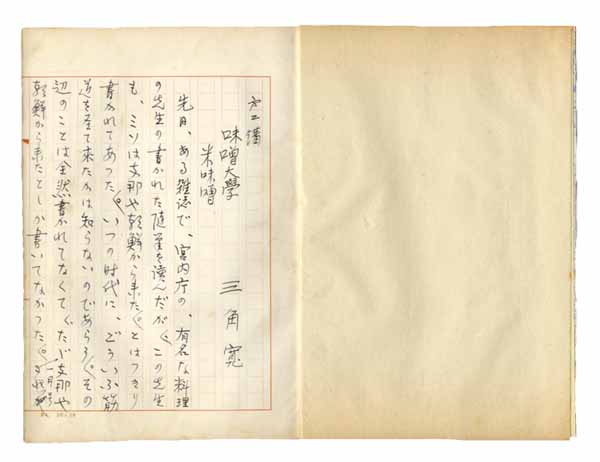 味噌大學
米味噌
三角寛
先日、ある雑誌で、宮内庁の、有名な料理
の先生の書かれた随筆を読んだが、この先生
も、ミソは支那や朝鮮から来た、とはつきり
書かれてあつた。いつの時代に、どういふ筋
道を至て来たかは知らないのであらう。その
辺のことは全然書かれてなくて、たゞ支那や
朝鮮から来たとしか書いてなかつた。